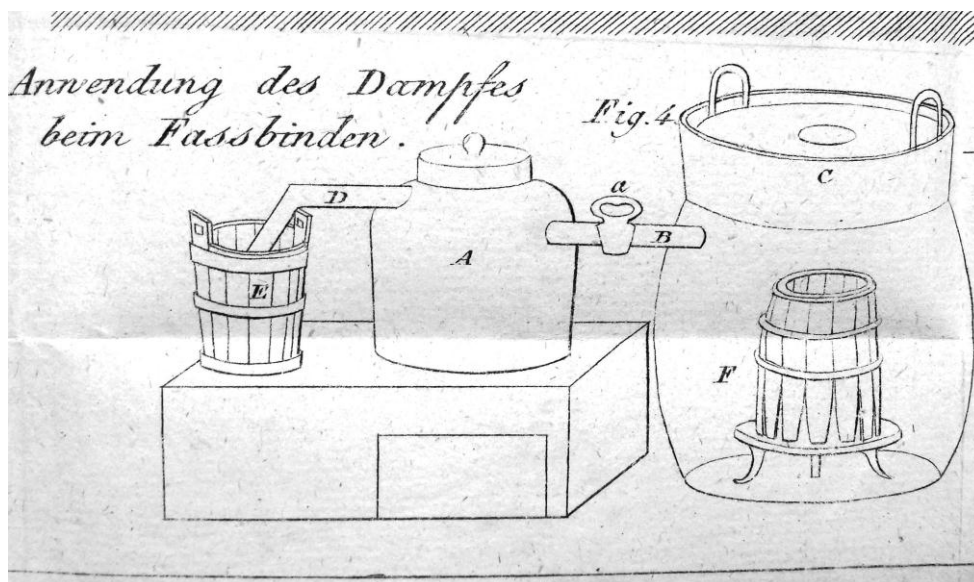 Anwendung des Dampfes
beim Fassbinden.
Fig. 4
a
C
D
B
A
E
F